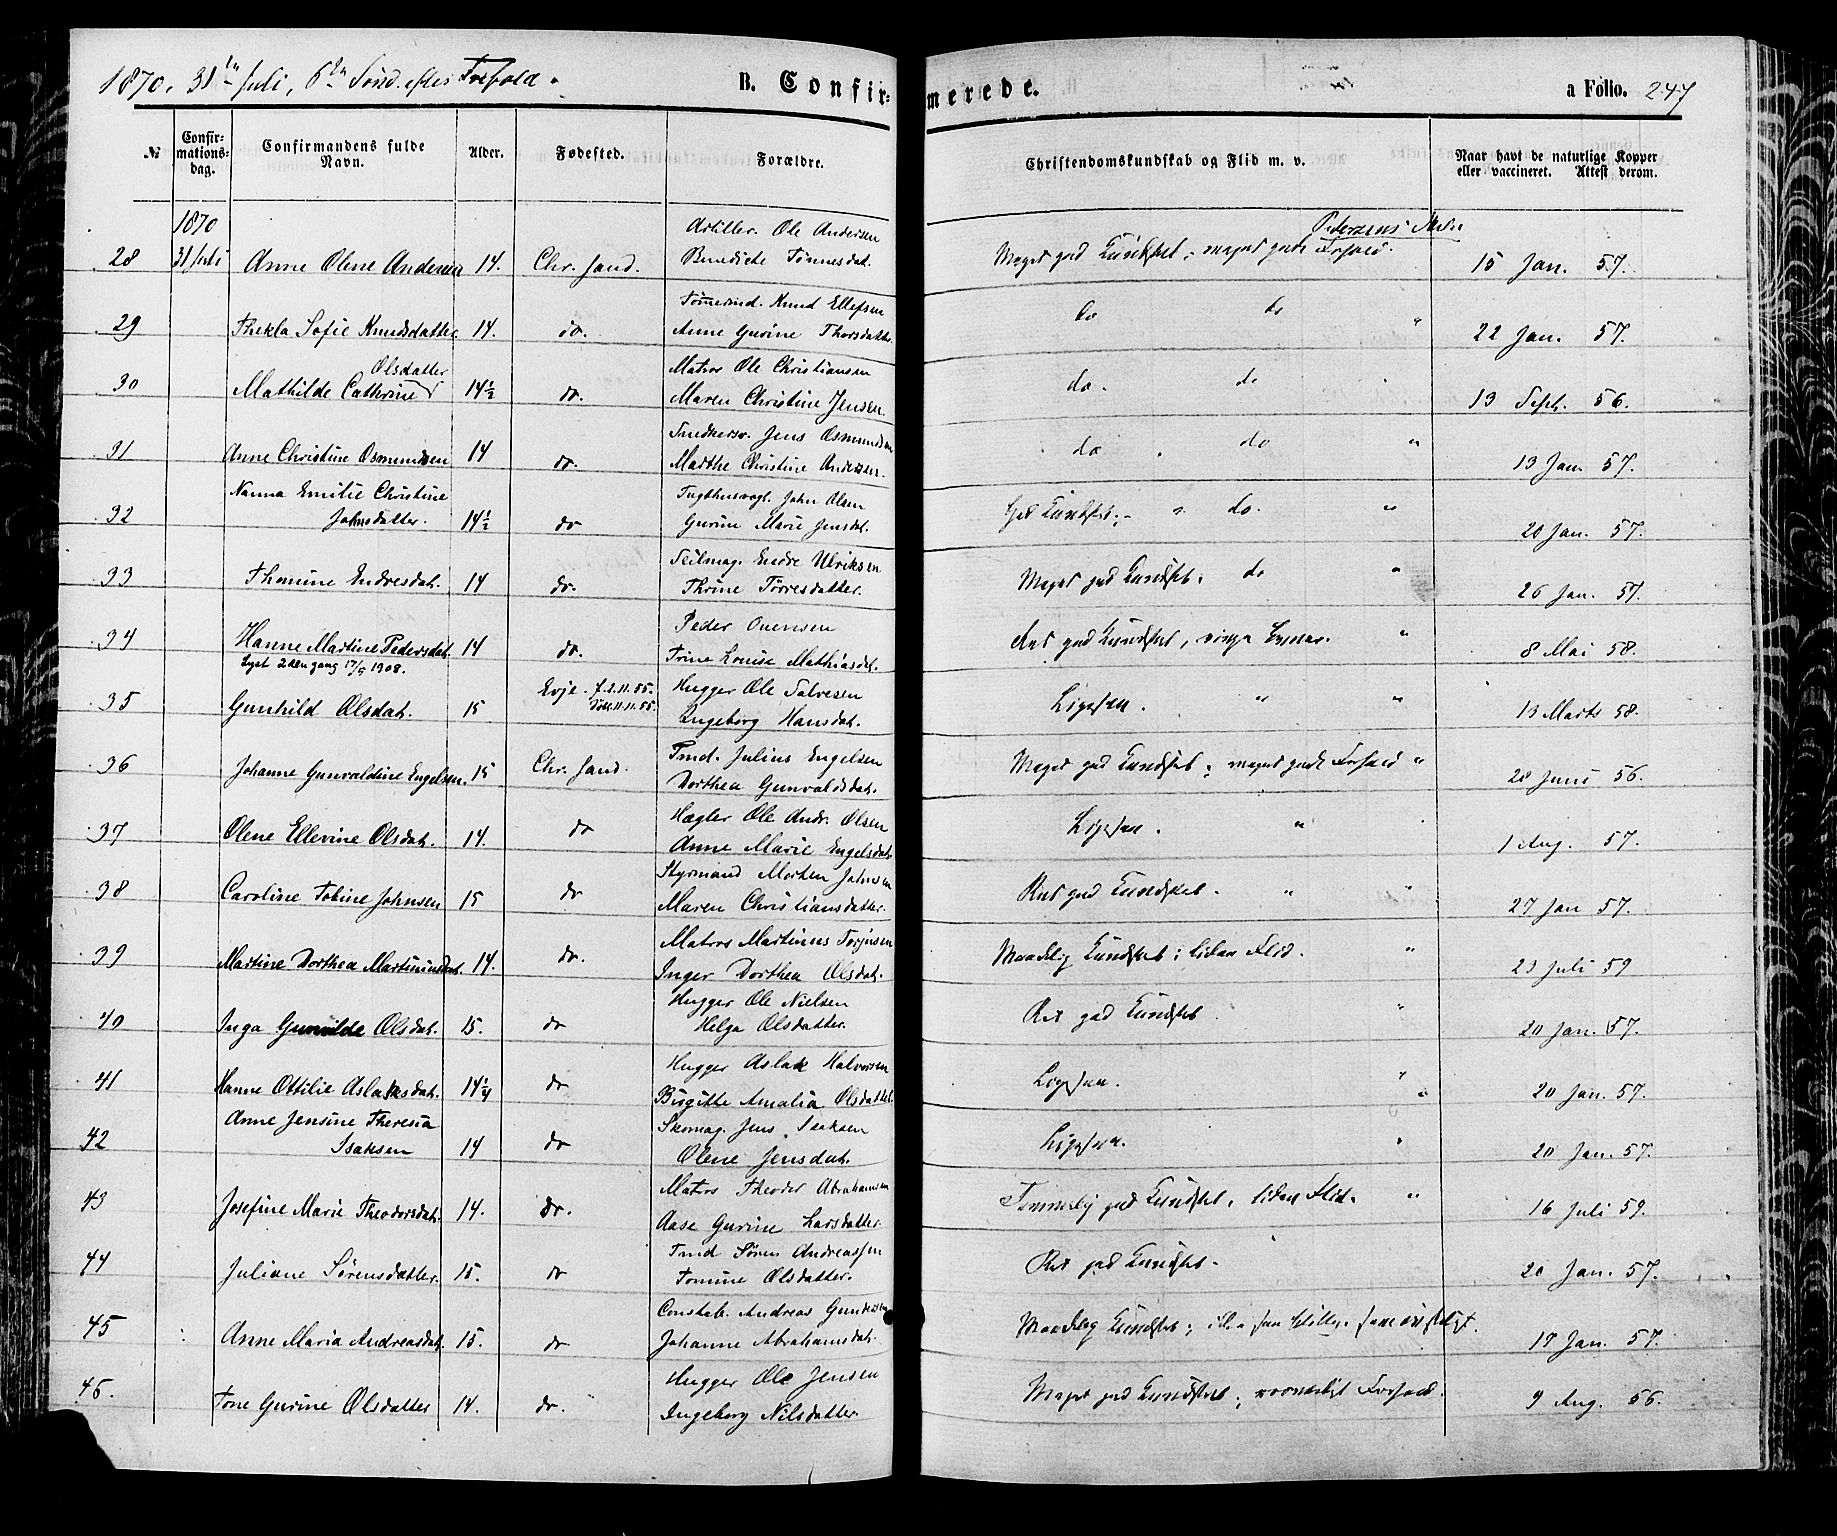 1870. 31te Juli, 6te Sønd. efter Trefold.
B. Confirmerede.
a Folio. 247
№
Confirmations-dag.
Confirmandens fulde Navn.
Alder.
Fødested.
Forældre.
Christendomskundskab og Flid m. v.
Naar havt de naturlige Kopper eller vaccineret. Attest derom.
1870 Artiller. Ole Andersen
28 31 Juli Anne Olene Andersen 14. Chr. sand. Benedicte Tønnesdat. Meget god Kundskab; meget godt Forhold. 15 Jan. 57.
Tømmermd. Knud Ellefsen
29 Thekla Sofie Knudsdatter 14. do. Anne Gurine Thorsdatter. do do " 22 Jan. 57.
Olsdatter Matros Ole Christiansen
30 Mathilde Cathrine 14½ do. Maren Christine Jensen. do. do 13 Sept. 56.
Snedkersv. Jens Osmundsen
31 Anne Christine Osmundsen 14 do. Marthe Christine Andersen. do. do " 13 Jan. 57.
Nanna Emilie Christine Tugthusvogt. John Olsen
32 Johnsdatter. 14½ do Gurine Marie Jensdat. God Kundskab; " do. " 20 Jan. 57.
Seilmag. Endre Ulriksen
33 Thomine Endresdat. 14 do. Thrine Torresdatter. Meget god Kundskab; do " 26 Jan. 57.
Peder Evensen
34 Hanne Martine Pedersdat. 14 do. Trine Louise Mathiasdat. Ret god Kundskab, " 8 Mai 58.
Lyst 2den gang 17/9 1908.
Evje. f. 2.11.55. Hugger Ole Salvesen
35 Gunhild Olsdat. 15 Døbt. 11.11.55. Ingeborg Hansdat. Ligesaa. " " 13 Marts 58.
Tmd. Julius Engelsen
36 Johanne Gunvaldine Engelsen. 15 Chr. sand. Dorthea Gunvaldsdat. Meget god Kundskab; meget godt Forhold " 28 Juni 56.
Hægler Ole Andr. Olsen
37 Olene Ellevine Olsdat. 14. do Anne Marie Engelsdat. Ligesaa. " 1 Aug. 57.
Styrmand Morten Johnsen
38 Caroline Tobine Johnsen 15 do Maren Christiansdatter. Ret god Kundskab. " " 27 Jan 57.
Matros Martinus Torjusen
39 Martine Dorthea Martinusdat. 14. do. Inger Dorthea Olsdat. Maadelig Kundskab; liden Flid. " 23 Juli 59
Hugger Ole Nielsen
40 Inga Gunvilde Olsdat. 15. do Helga Olsdatter. Ret god Kundskab " 20 Jan. 57.
Hugger Aslak Halvorsen
41 Hanne Ottilie Aslaksdat. 14¼ do Birgitte Amalia Olsdatter. Ligesaa. " 20 Jan. 57.
Anne Jensine Theresia Skomag. Jens Isaksen
42 Isaksen 14 do Olene Jensdat. Ligesaa. " 20 Jan. 57.
Matros Theodor Abrahamsen
43 Josefine Marie Theodorsdat. 14. do. Aase Gurine Larsdatter. Temmelig god Kundskab, liden Flid. " 16 Juli 59.
Tmd Søren Andreassen
44 Juliane Sørensdatter. 15. do Tomine Olsdatter. Ret god Kundskab. 20 Jan. 57.
Constab. Andreas Gundersen
45 Anne Maria Andreasdat. 15. do Johanne Abrahamsdat. Maadelig Kundskab; 17 Jan. 57.
Hugger Ole Jensen
46. Tone Gurine Olsdatter 14. do. Ingeborg Nilsdatter Meget god Kundskab; Forhold. 9 Aug. 56.